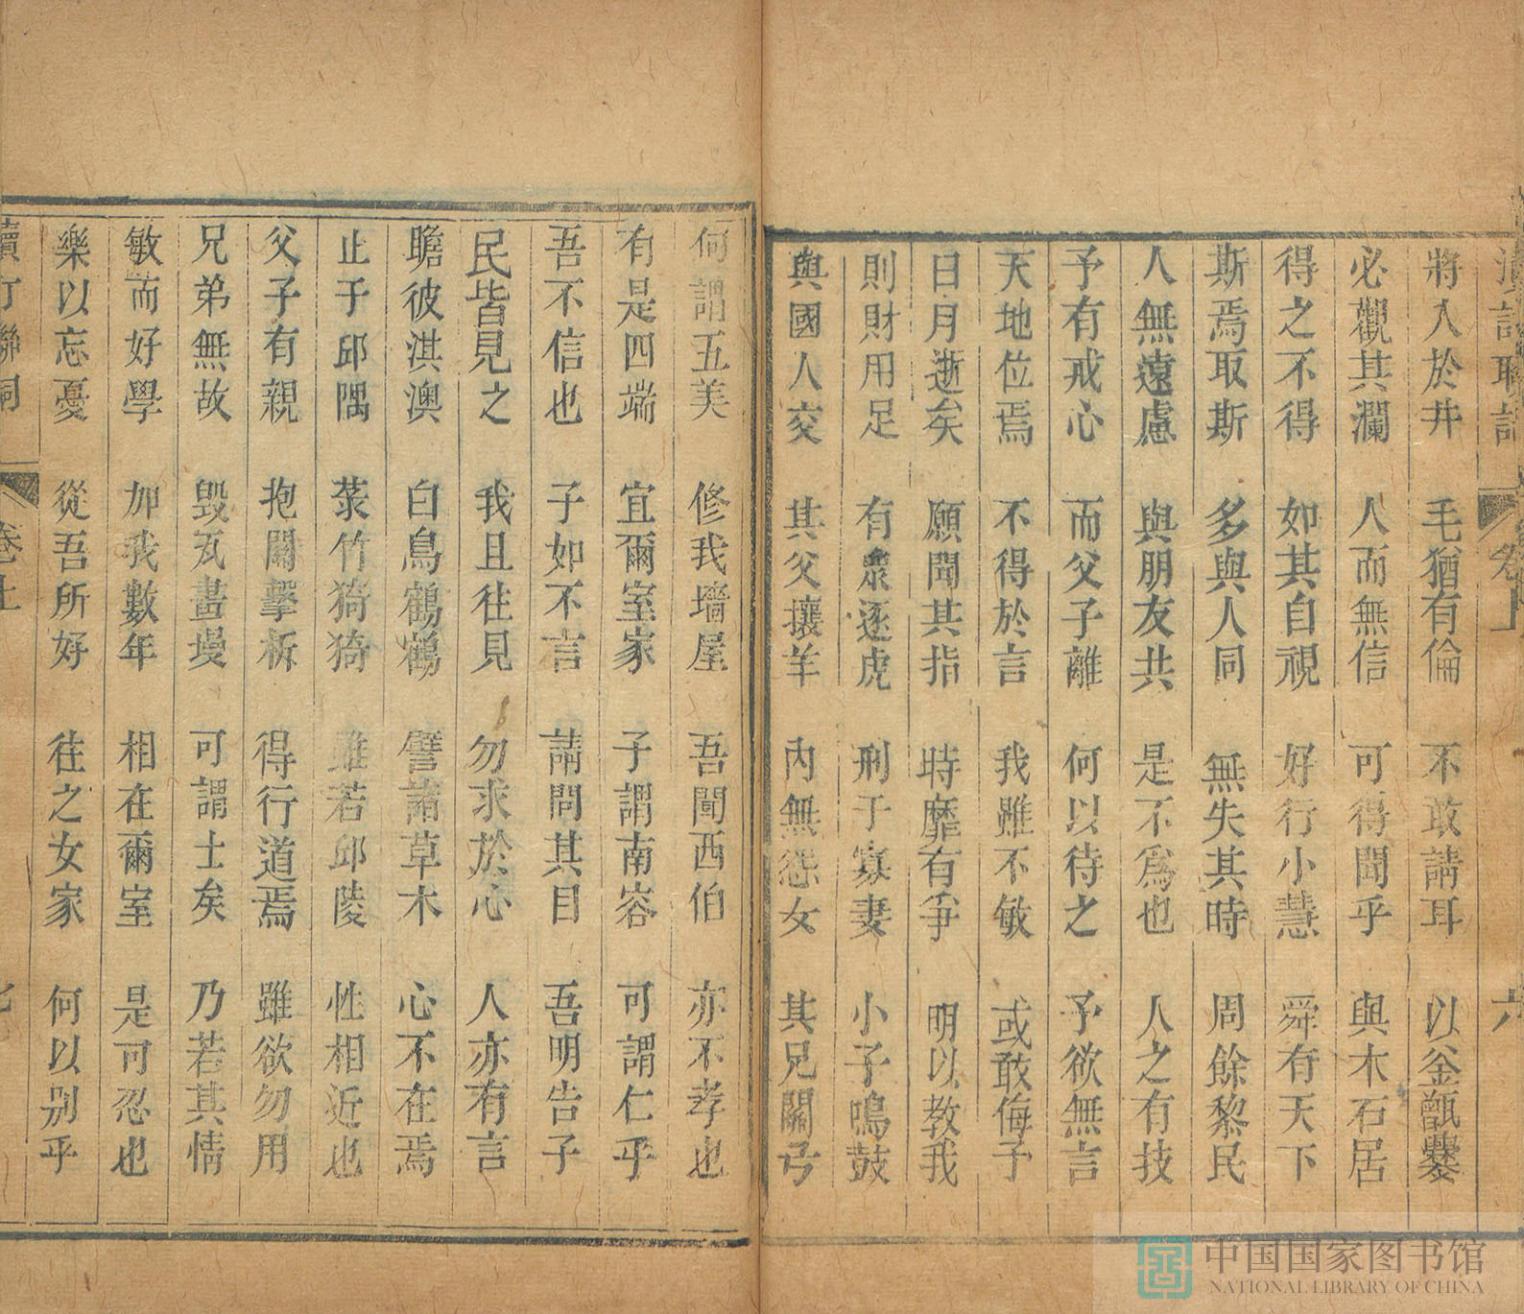 將入於井　毛猶有倫　不敢請耳　以釜甑爨
必觀其瀾　人而無信　可得聞乎　與木石居
得之不得　如其自視　好行小慧　舜有天下
斯焉取斯　多與人同　無失其時　周餘黎民
人無遠慮　與朋友共　是不為也　人之有技
予有戒心　而父子離　何以待之　予欲無言
天地位焉　不得於言　我雖不敏　或敢侮予
日月逝矣　願聞其指　時靡有爭　明以教我
則財用足　有衆逐虎　刑于寡妻　小子鳴鼓
與國人交　其父攘羊　內無怨女　其兄關弓
何謂五美　修我墻屋　吾聞西伯　亦不孝也
有是四端　宜爾室家　子謂南容　可謂仁乎
吾不信也　子如不言　請問其目　吾明告子
民皆見之　我且往見　勿求於心　人亦有言
瞻彼淇澳　白鳥鶴鶴　譬諸草木　心不在焉
止于邱隅　菉竹猗猗　雖若邱陵　性相近也
父子有親　抱關擊柝　得行道焉　雖欲勿用
兄弟無故　毀瓦畫墁　可謂士矣　乃若其情
敏而好學　加我數年　相在爾室　是可忍也
樂以忘憂　從吾所好　往之女家　何以別乎
卷上
中国国家图书馆
NATIONAL LIBRARY OF CHINA